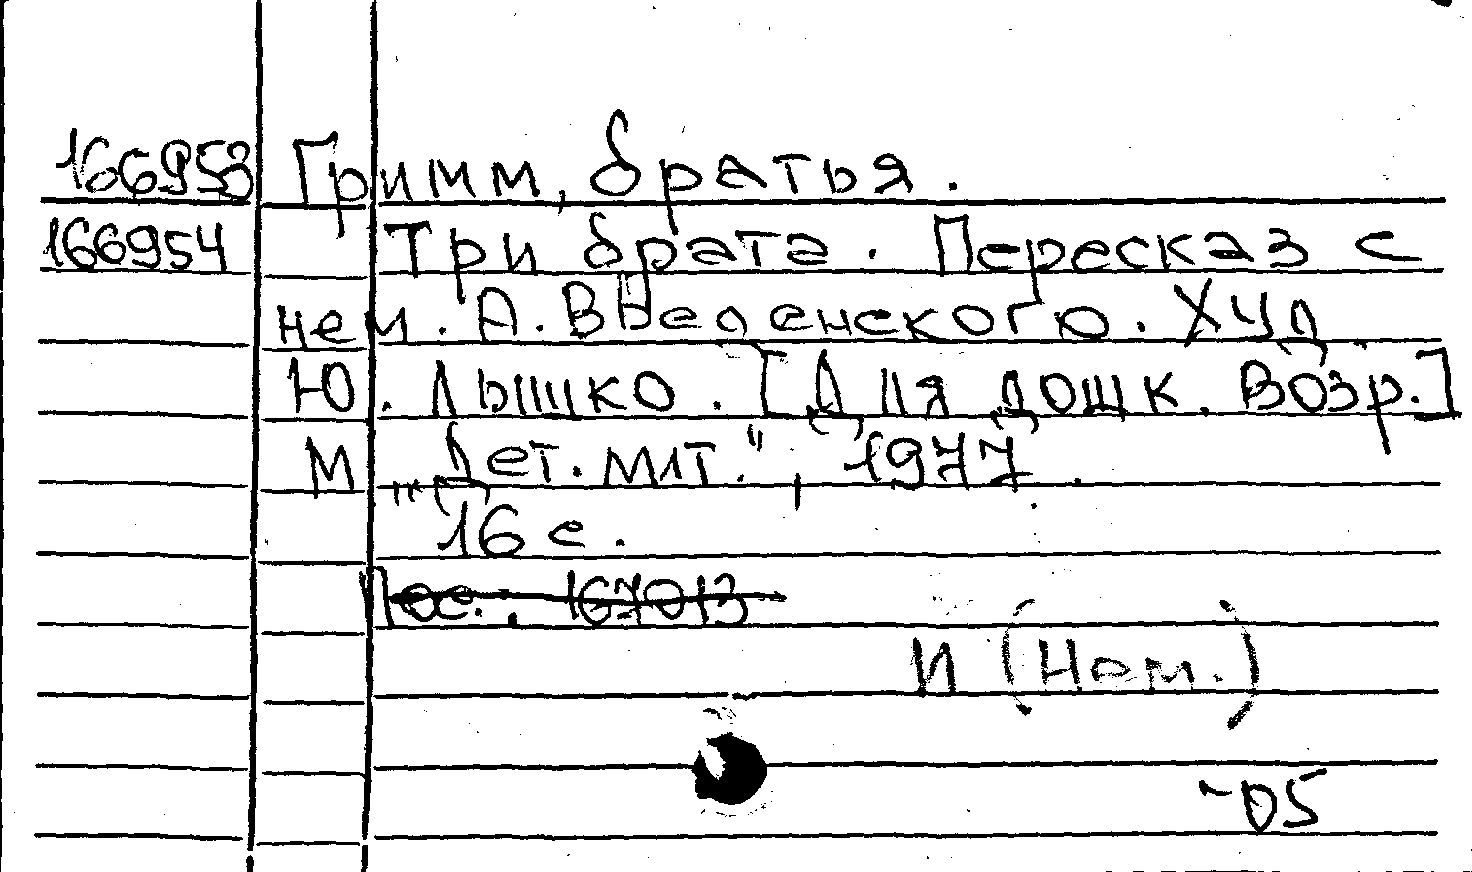 166953 Гримм, братья.
166954 Три брата. Пересказ с
нем. А. Введенского. Худ
Ю. Лышко. [Для дошк. возр.]
М „Дет. лит.", 1977.
16 с.
Пос.: 167013
И (Нем.)
-05